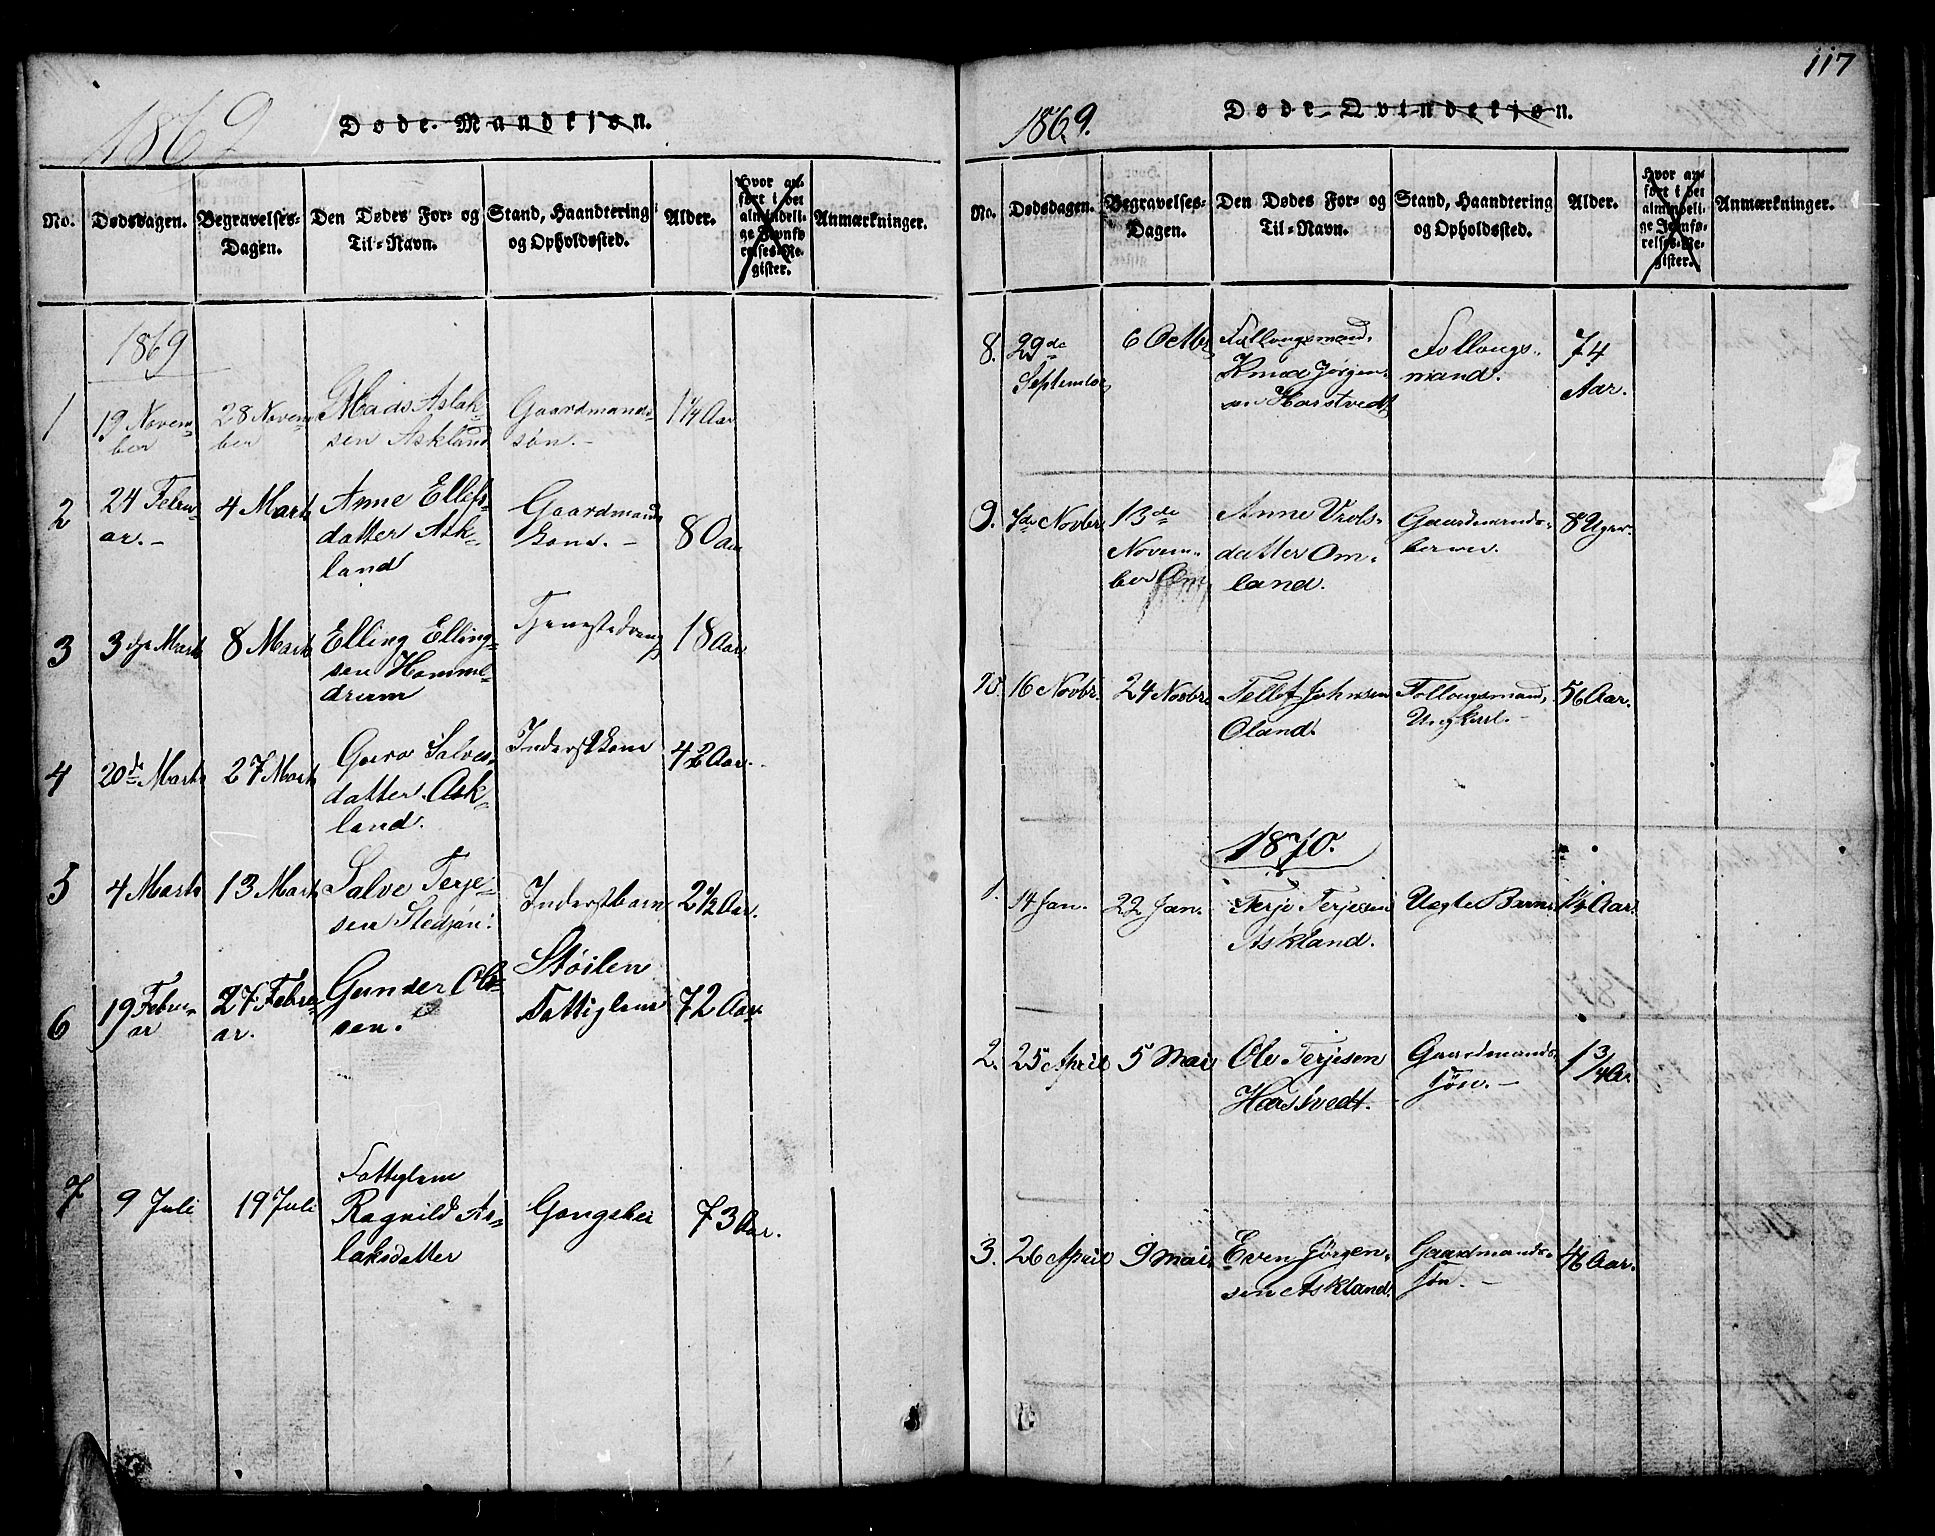 1869
Døde-Mandkjøn.
No.
Dødsdagen.
Begravelses-
Dagen.
Den Dødes For- og
Til-Navn.
Stand, Haandtering
og Opholdssted.
Alder.
Hvor an-
ført i det
almindeli-
ge Jevnfø-
relses-Re-
gister.
Anmærkninger.
1869
1
19 Novem-
ber
28 Novem-
ber
Mads Aslak-
sen Askland
Gaardmands-
søn.-
1 1/4 Aar
2
24 Febru-
ar.-
4 Marts
Anne Ellefs-
datter Ask-
land
Gaardmands
kone.-
80 Aar
3
3die Marts
8 Marts
Elling Elling-
sen Homme-
drum
Tjenestedreng
18 Aar
4
20de Marts
27 Marts
Guro Salves-
datter Ask-
land.
Inderstkone
42 Aar.
5
4 Marts
13 Marts
Salve Terje-
sen Stedjan:
Inderstbarn
2 1/2 Aar.
6
19 Febru-
ar
27 Febru-
ar.
Gunder Ol-
sen.
Støilen
Fattiglem
72 Aar
7
9 Juli
19 Juli
Fattiglem
Ragnild As-
laksdatter
Gangshei
73 Aar.
117
1869.
Døde-Qvindekjøn.
No.
Dødsdagen.
Begravelses-
Dagen.
Den Dødes For- og
Til-Navn.
Stand, Haandtering
og Opholdssted.
Alder.
Hvor an-
ført i det
almindeli-
ge Jevnfø-
relses-Re-
gister.
Anmærkninger.
8.
29de
September
6 Octbr
Føllougsmand,
Knud Jørgen-
sen Harstvedt
Føllougs-
mand.
74
Aar.
9.
7de Novbr.
13de
Novem-
ber Om
Anne Vrols-
datter Om-
land.
Gaardmands-
barn
8 Uger.
10.
16 Novbr.
24 Novbr.
Tellef Johnsen
Oland.
Føllougsmand,
Ungkarl.-
56 Aar.
1870.
1.
14 Jan.
22 Jan.
Terje Terjesen
Askland.
Uegte Barn.
1 1/4 Aar.
2.
25 April
5 Mai
Ole Terjesen
Harstvedt.
Gaardmands-
søn.-
1 3/4 Ar.
3.
26 April
9 Mai
Even Jørgen-
sen Askland.
Gaardmands-
søn.-
46 Aar.